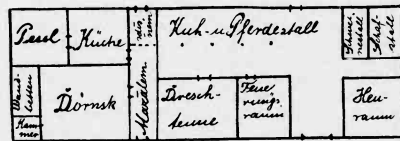 Pesel
Küche
Kuh- u Pferdestall
Schweinestall
Schafstall
Wandbetten
Dörnsk
Kammer
Dreschtenne
Feuerungsraum
Heuraum